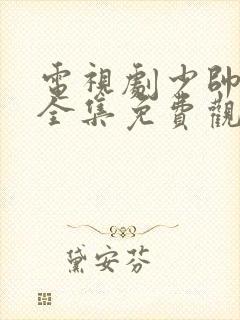 電視劇少帥
全集免費觀
黛安芬